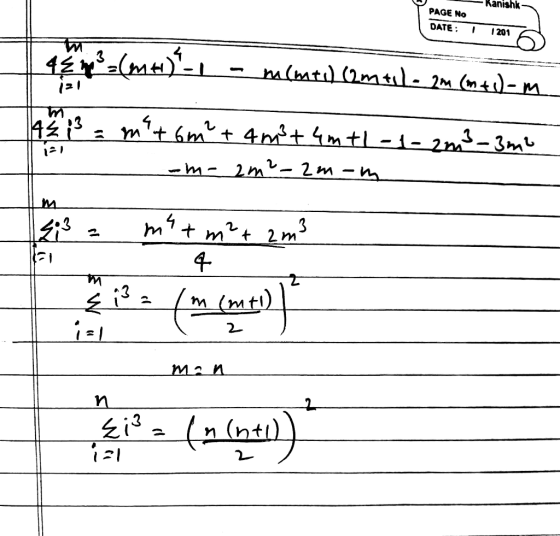 Kanishk
PAGE No
DATE : / / 201
4 m Σ i=1 r³ = (m+1)⁴ - 1 - m(m+1)(2m+1) - 2m(m+1) - m
4 m Σ i=1 i³ = m⁴ + 6m² + 4m³ + 4m + 1 - 1 - 2m³ - 3m²
- m - 2m² - 2m - m
m Σ i=1 i³ = (m⁴ + m² + 2m³)/4
m Σ i=1 i³ = (m(m+1)/2)²
m = n
n Σ i=1 i³ = (n(n+1)/2)²